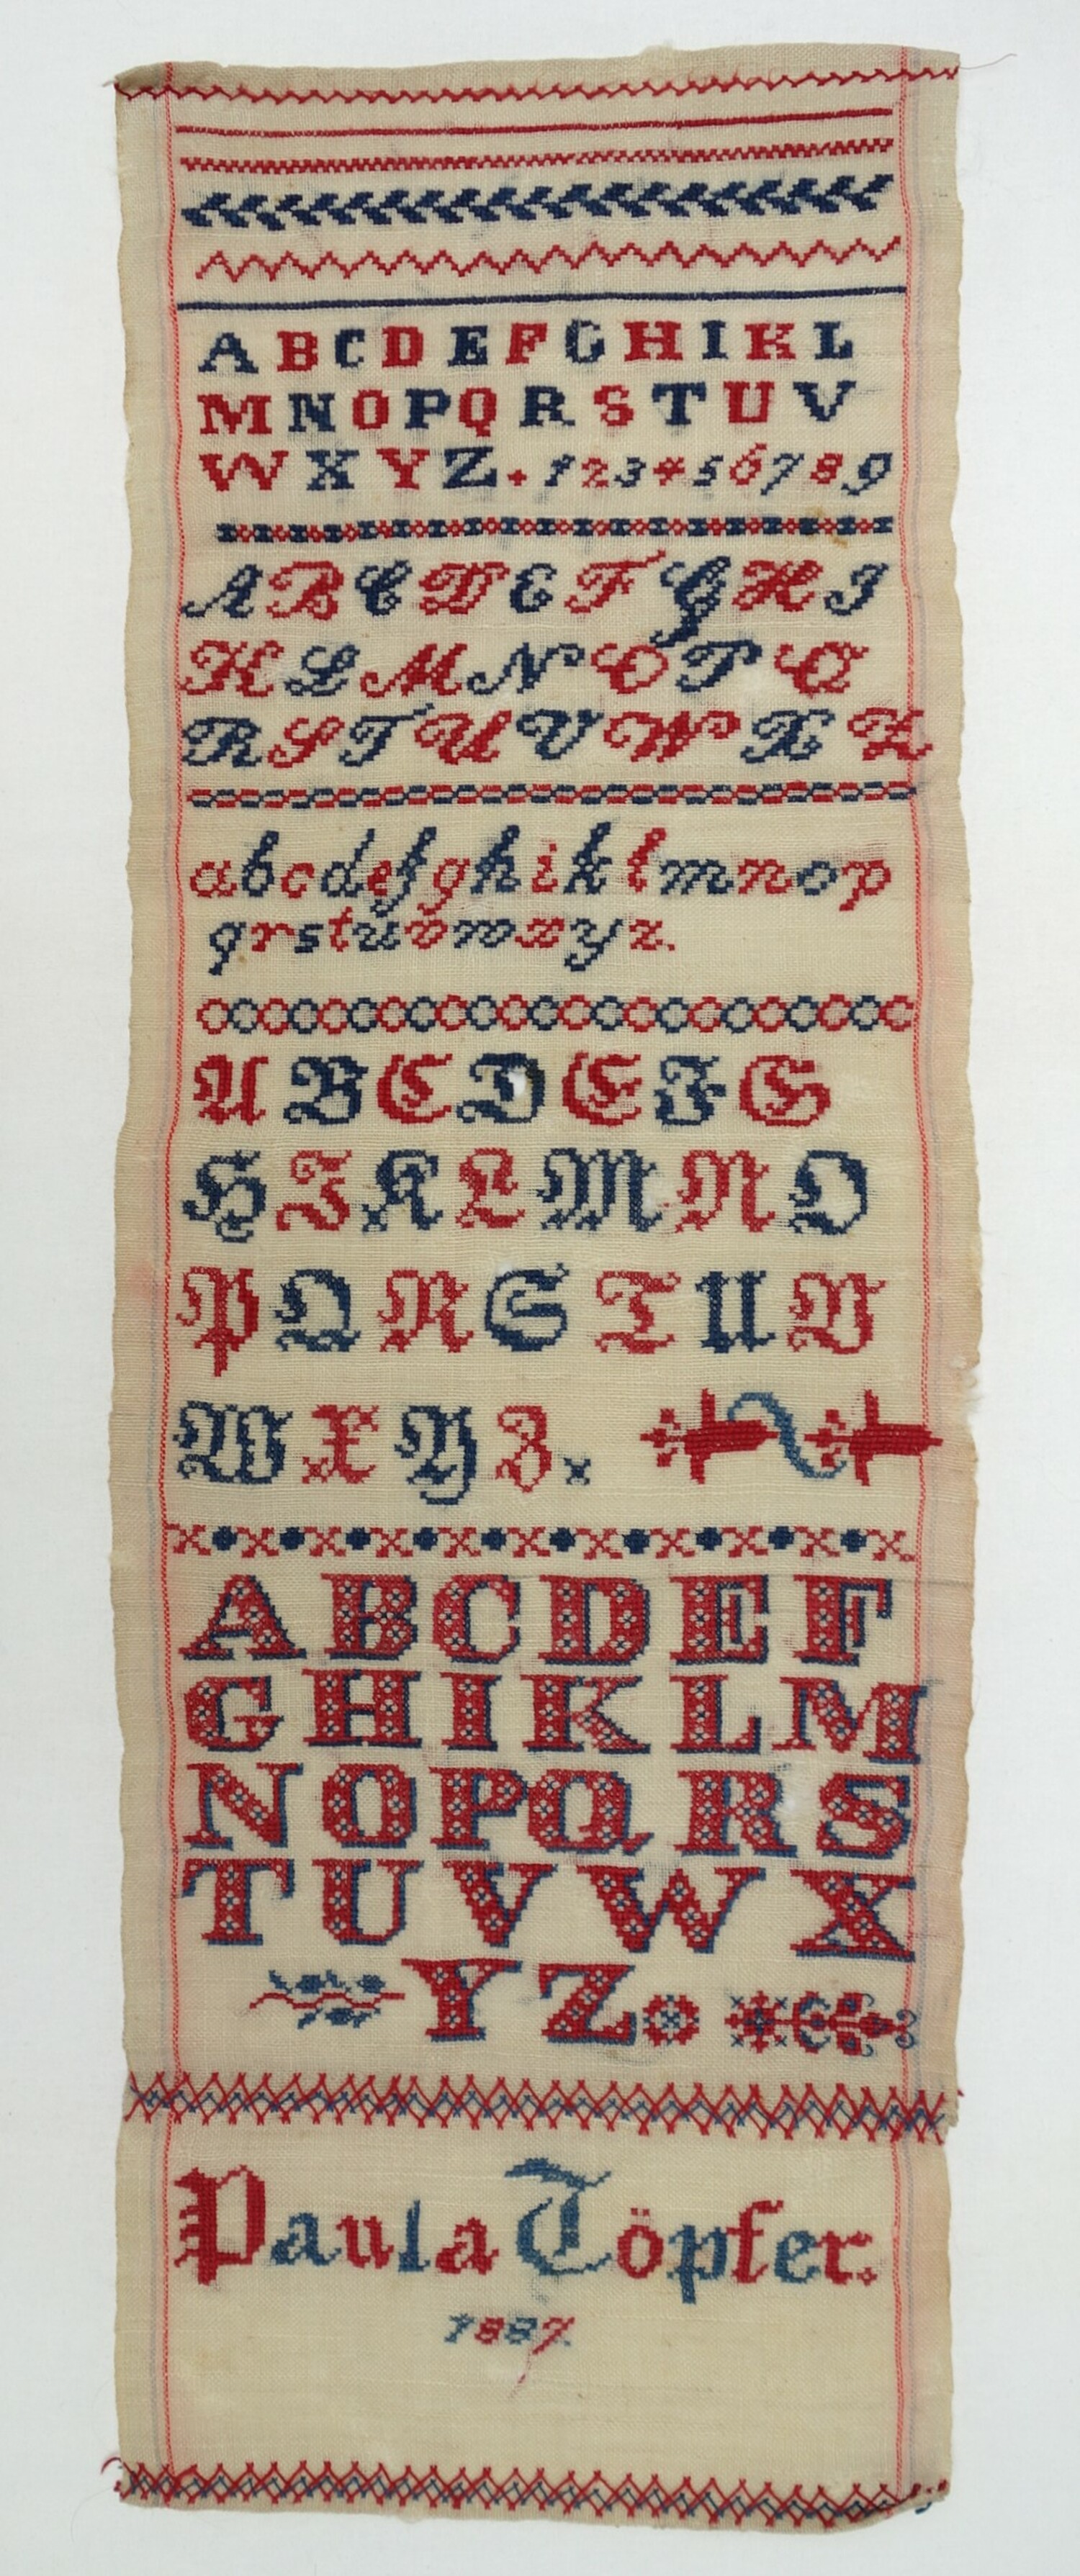 A B C D E F G H I K L
M N O P Q R S T U V
W X Y Z + 1 2 3 4 5 6 7 8 9
A B C D E F G H I
K L M N O P Q
R S T U V W X Z
a b c d e f g h i k l m n o p
q r s t u v w x y z.
A B C D E F G
H I K L M N O
P Q R S T U V
W X Y Z.
A B C D E F
G H I K L M
N O P Q R S
T U V W X
Y Z
Paula Töpfer.
1887.